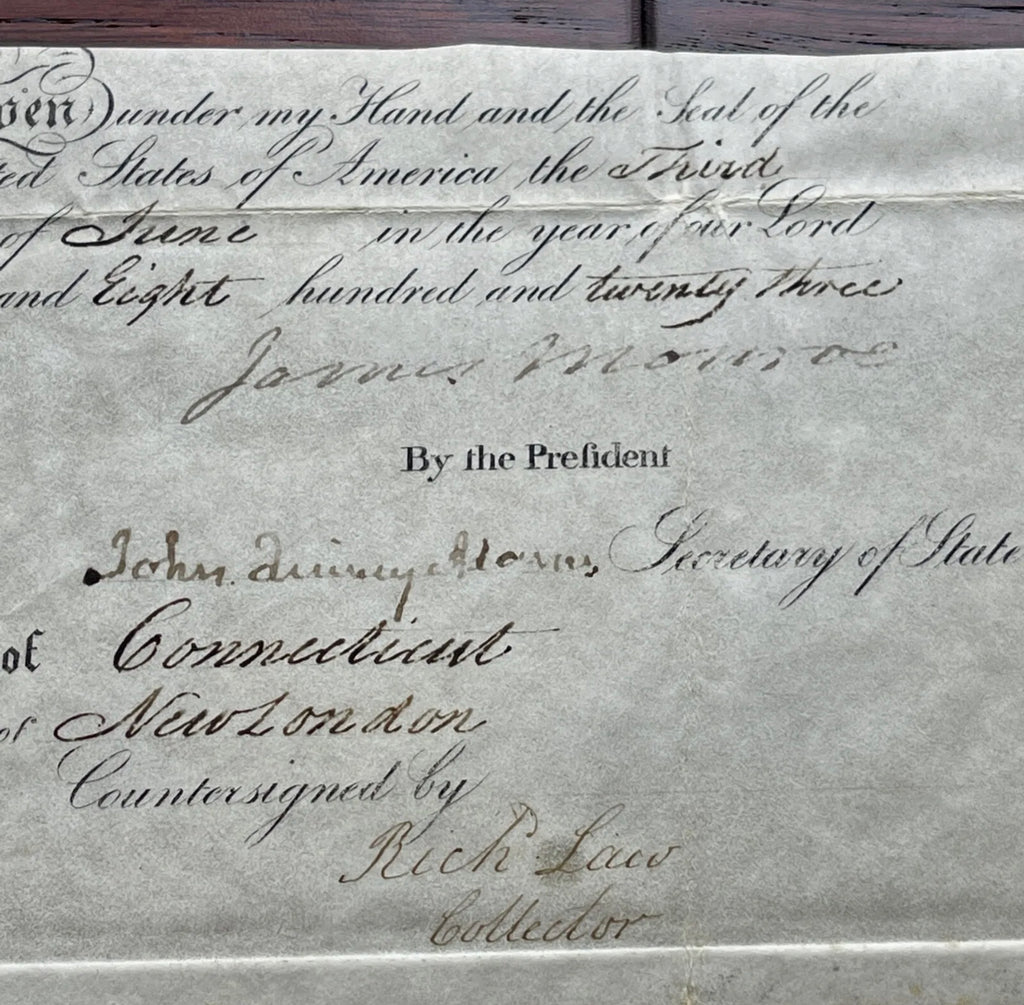 ven under my Hand and the Seal of the
ted States of America the Third
of June in the year of our Lord
and Eight hundred and twenty three
James Monroe
By the Preſident
John Quincy Adams, Secretary of State
of Connecticut
of New London
Countersigned by
Richd Law
Collector